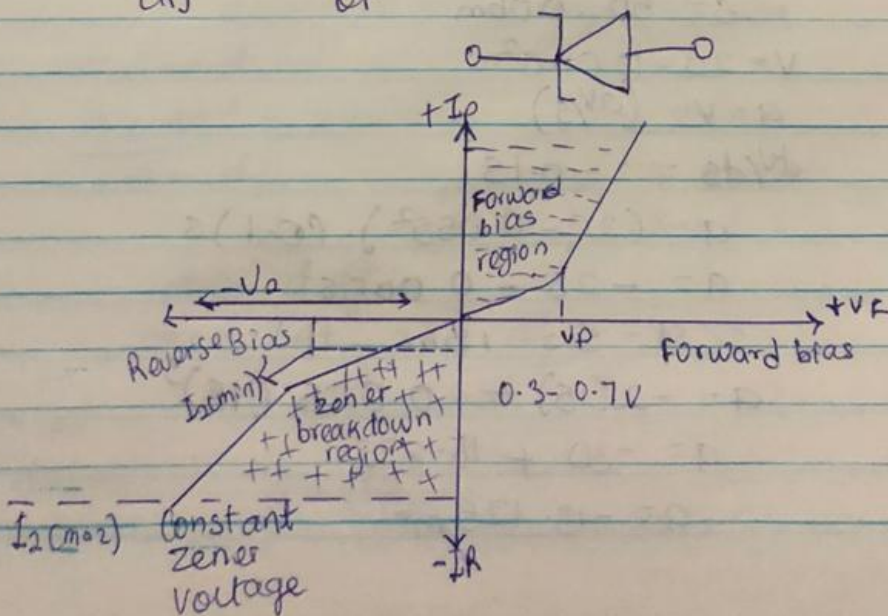 +Ip
Forward
bias
region
-Va
+VF
Reverse Bias
VP
Forward bias
I2(min)
0.3-0.7V
zener
breakdown
region
I2(maz)
Constant
zener
voltage
-IR